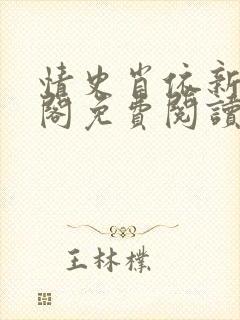 情史肖依新
閣免費閱讀
王林檏